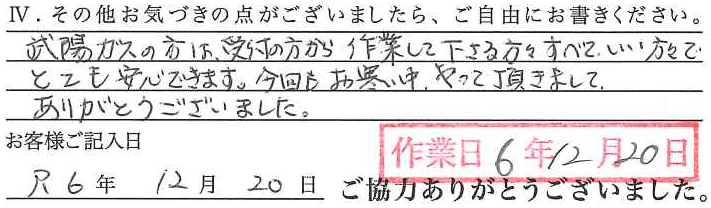 Ⅳ．その他お気づきの点がございましたら、ご自由にお書きください。
武陽ガスの方は、受付の方から作業して下さる方々すべて、いい方々で
とても安心できます。今回もお寒い中、やって頂きまして、
ありがとうございました。
お客様ご記入日
作業日 6年12月20日
R6年 12月 20日 ご協力ありがとうございました。